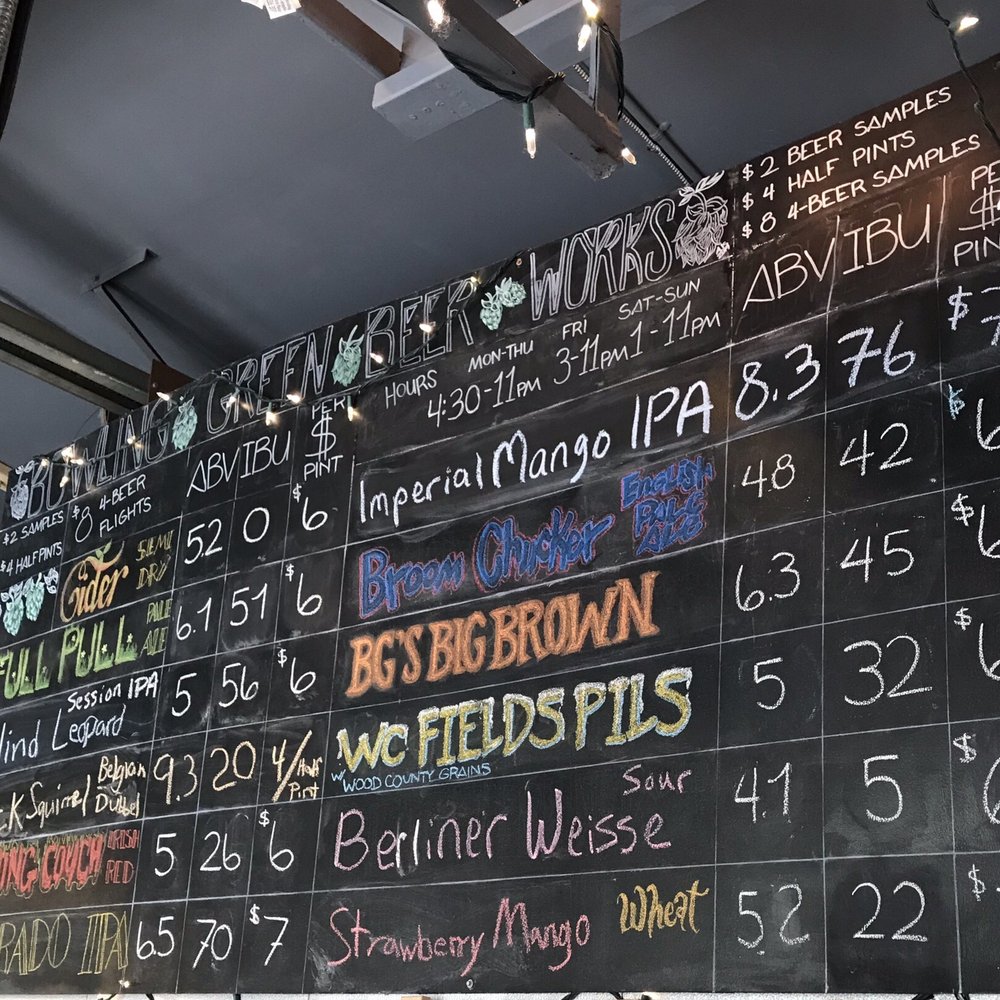 BOWLING GREEN BEER WORKS
$2 BEER SAMPLES
$4 HALF PINTS
$8 4-BEER SAMPLES
HOURS MON-THU 4:30-11PM FRI 3-11PM SAT-SUN 1-11PM
$2 SAMPLES
$4 HALF PINTS
$8 4-BEER FLIGHTS
ABV IBU PER $ PINT
Cider SEMI DRY 5.2 0 $6
FULL PULL PALE ALE 6.1 51 $6
lind Leopard Session IPA 5 56 $6
ck Squirrel Belgian Dubbel 9.3 20 4/Half Pint
ING COUCH IRISH RED 5 26 $6
RADO IIPA 6.5 70 $7
ABV IBU PE $ PIN
Imperial Mango IPA 8.3 76 $7
Broom Chucker ENGLISH PALE ALE 4.8 42 $6
BG'S BIG BROWN 6.3 45 $6
WC FIELDS PILS W/ WOOD COUNTY GRAINS 5 32 $6
Berliner Weisse Sour 4.1 5 $6
Strawberry Mango Wheat 5.2 22 $